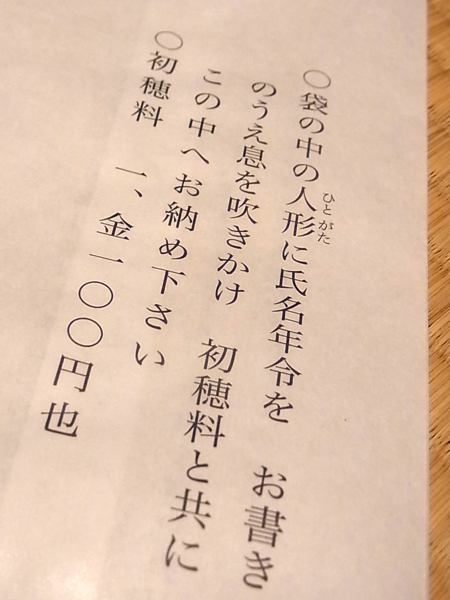 ○袋の中の人形に氏名年令を　お書き
ひとがた
のうえ息を吹きかけ　初穂料と共に
この中へお納め下さい
○初穂料　一、金一〇〇円也